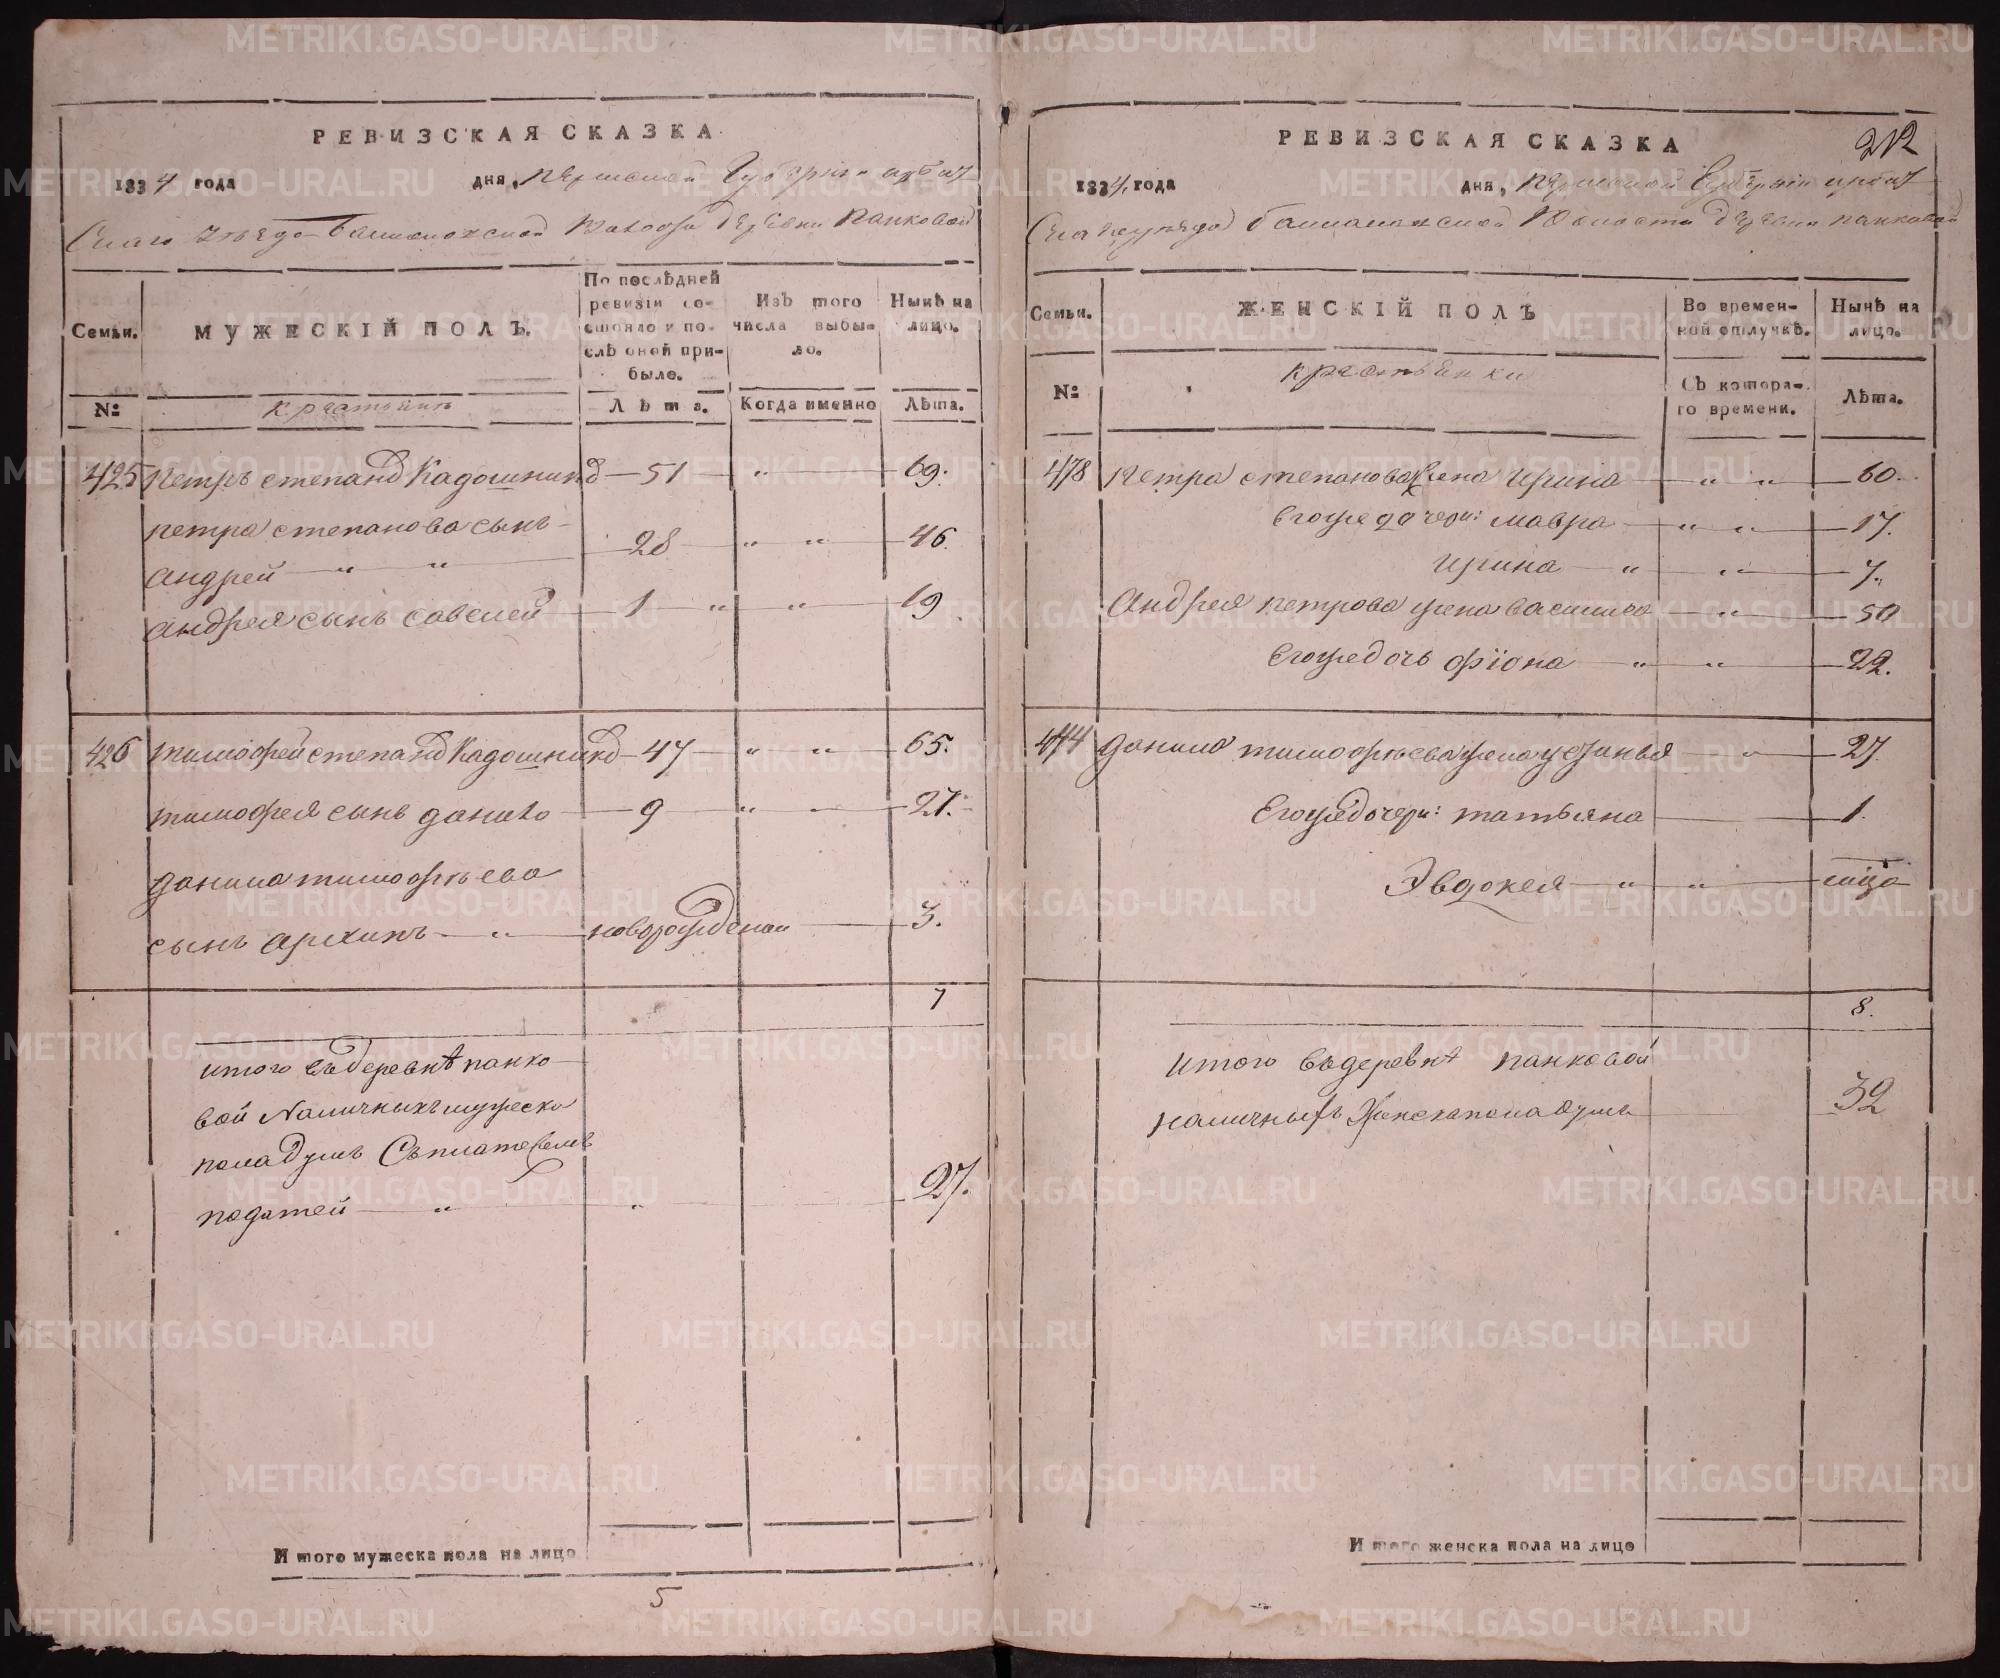 РЕВИЗСКАЯ СКАЗКА
1834 года дня, Пермской Губернии Ирбит
скаго уезда Волости деревни Панковой
Семьи. МУЖЕСКІЙ ПОЛЪ. По послѣдней ревизіи состояло и послѣ оной прибыло. Изъ того числа выбыло. Нынѣ на лицо.
№ крестьяне Лѣта. Когда именно Лѣта.
425 Петръ степановъ Кадошниковъ 51 " 69.
петра степанова сынъ
андрей " " 28 " " 46.
андрея сынъ савелей 1 " " 19
426 тимофей степановъ Кадошниковъ 47 " " 65.
тимофея сынъ данило 9 " " 27.
данила тимофѣева
сынъ архипъ " новорожденой 3.
7
итого въ деревнѣ панко
вой Наличныхъ мужеска
пола душъ Съ платежемъ
податей " " 27.
Итого мужеска пола на лицо
5
РЕВИЗСКАЯ СКАЗКА
212
1834 года дня, Пермской Губернии Ирбит
Волости деревни панковой
Семьи. ЖЕНСКІЙ ПОЛЪ Во временной отлучкѣ. Нынѣ на лицо.
№ крестьянки Съ котораго времени. Лѣта.
478 Петра степанова жена Ирина " " 60.
Егоже дочери: мавра " " 17.
Ирина " " 7.
Андрея петрова жена василиса " 50
Егоже дочь фіона " " 22.
данила тимофѣева жена устинья " 27.
Егоже дочери: татьяна 1.
Эвдокея " "
8.
итого въ деревнѣ панковой
наличныхъ Женска пола душъ 32
Итого женска пола на лицо
METRIKI.GASO-URAL.RU